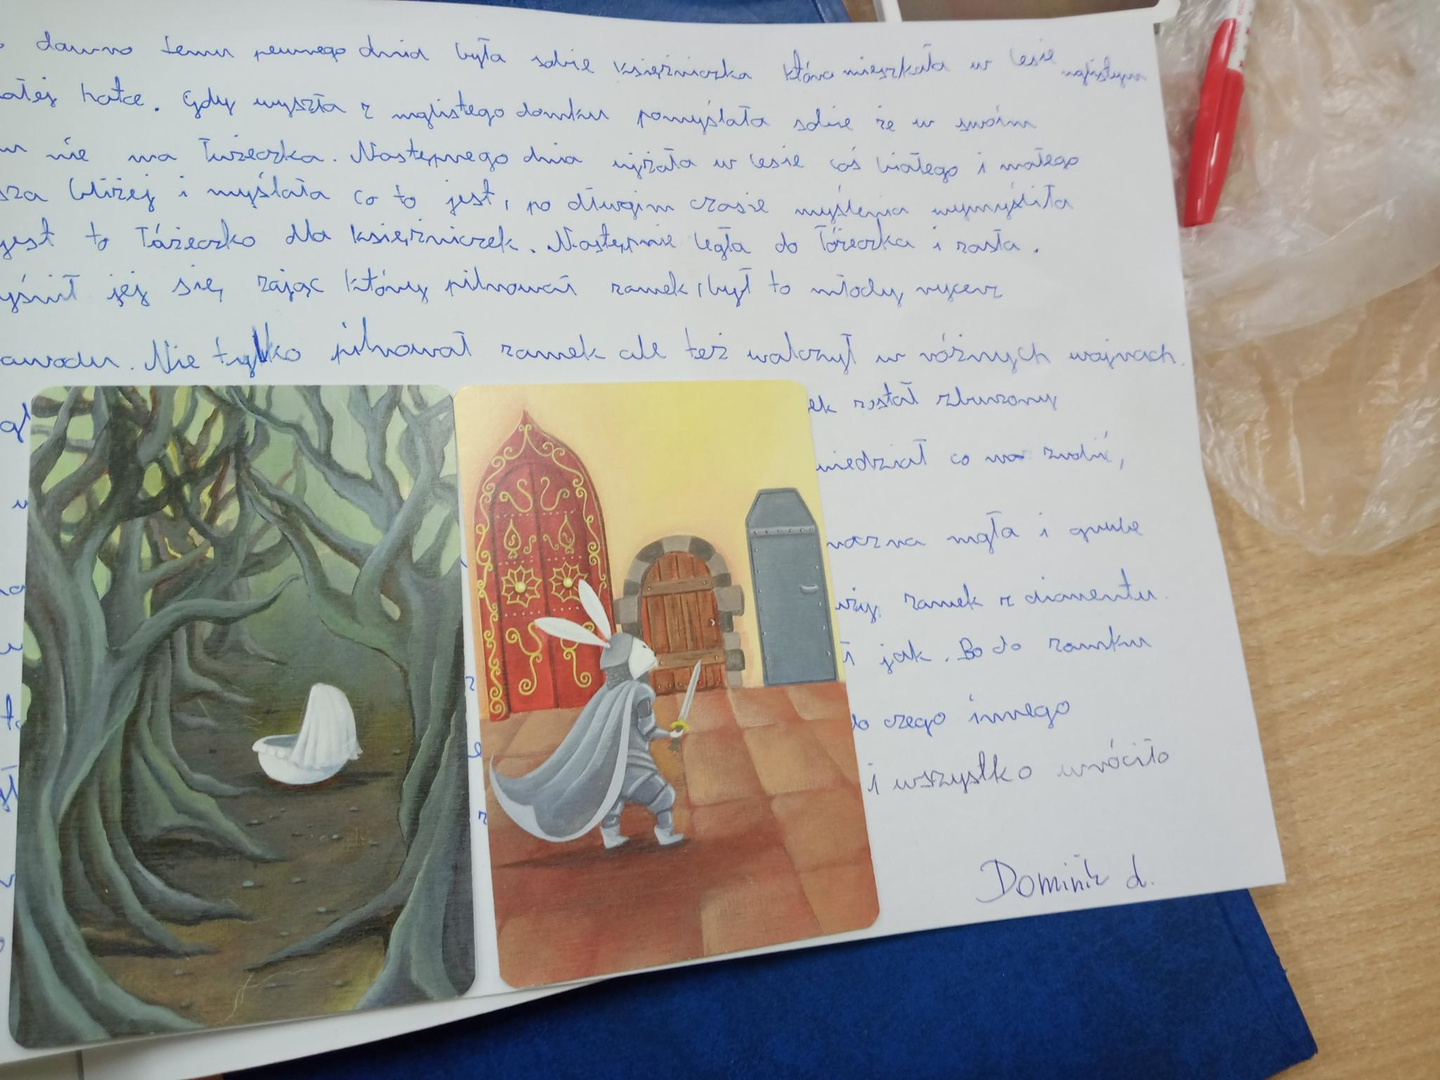 dawno temu pewnego dnia była sobie księżniczka która mieszkała w lesie mglistym
ałej hatce. Gdy wyszła z mglistego domku pomyślała sobie że w swoim
nie ma łużeczka. Następnego dnia ujżała w lesie coś białego i małego
sza bliżej i myślała co to jest, po długim czasie myślenia wymyśliła
jest to łóżeczko dla księżniczek. Następnie legła do łóżeczka i zasła.
yśnił jej się, zając który pilnował zamek, był to młody rycerz
awodu. Nie tylko pilnował zamek ale też walczył w różnych wojnach.
ek został zburzony
wiedział co zrobić,
mgła i grube
zamek z diamentu.
jak. Bo do zamku
do czego innego
i wszystko wróciło
Dominik d.